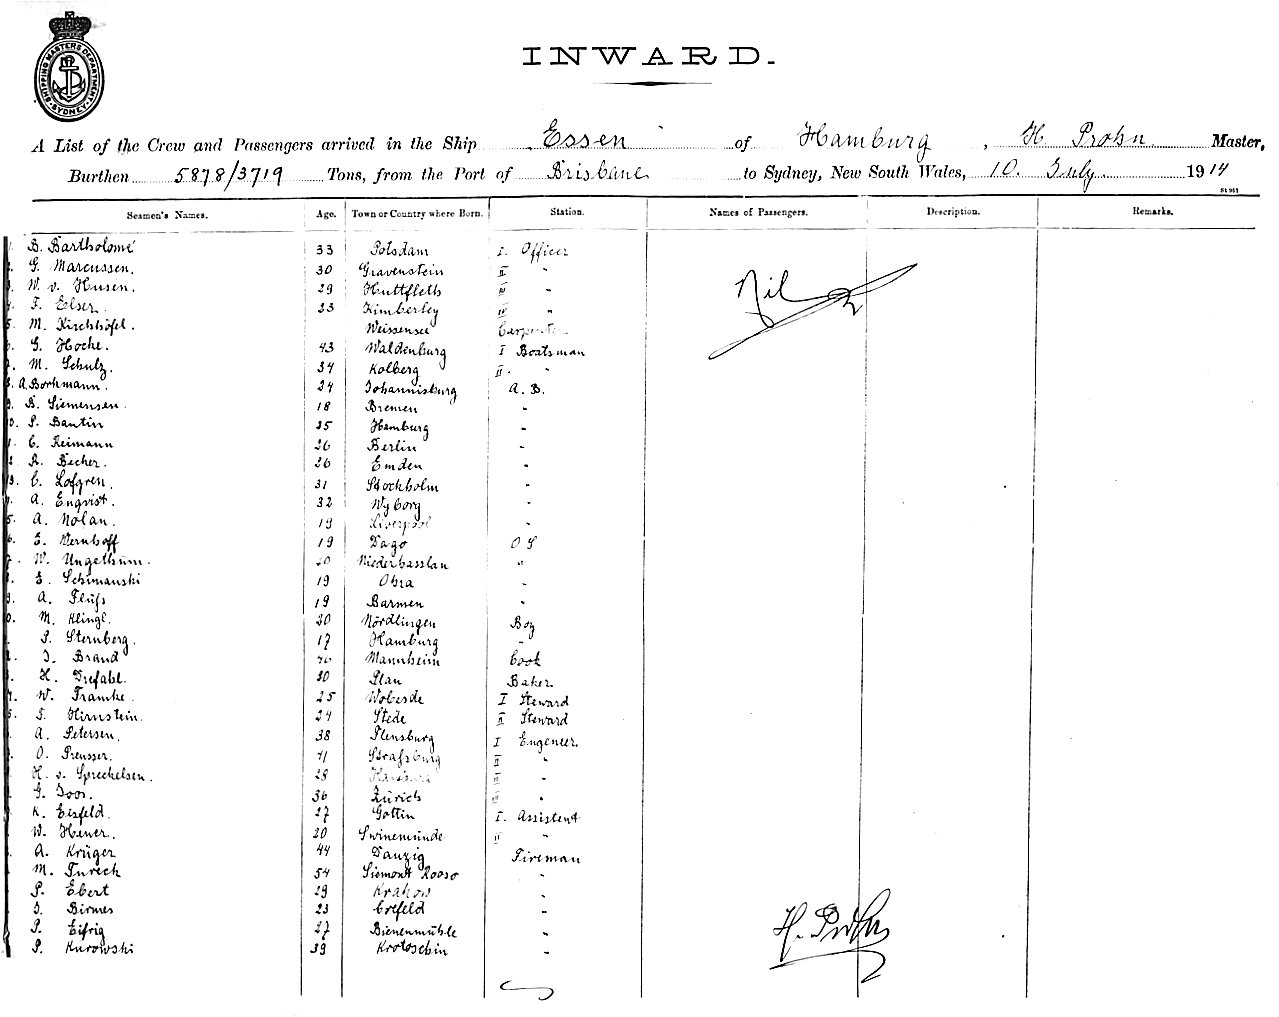 SHIPPING MASTERS DEPARTMENT SYDNEY
INWARD.
A List of the Crew and Passengers arrived in the Ship Essen of Hamburg, H Prohn Master,
Burthen 5878/3719 Tons, from the Port of Brisbane to Sydney, New South Wales, 10. July 1914
Seamen's Names. Age. Town or Country where Born. Station. Names of Passengers. Description. Remarks.
B. Bartholomé 33 Potsdam I. Officer
G. Marcussen. 30 Gravenstein II "
W. v. Husen. 29 Huttfleth III "
F. Elser. 23 Kimberley IV "
Nil
M. Kirchhöfel. Weissensee Carpenter
G. Hoche. 43 Waldenburg I Boatsman
M. Schulz. 34 Kolberg II. "
A. Borkmann. 24 Johannisburg A. B.
B. Siemensen. 18 Bremen "
P. Bantin 25 Hamburg "
C. Reimann 26 Berlin "
R. Becker. 26 Emden "
C. Lofgren. 31 Stockholm "
A. Enqvist. 32 Wyborg "
A. Nolan. 19 Liverpool "
E. Wernhoff 19 Dago O S
W. Ungethüm. 20 Niederhasslau "
E. Schimanski 19 Ohra "
A. Fluss 19 Barmen "
M. Klingl. 20 Nördlingen Boy
P. Sternberg. 17 Hamburg "
J. Brand 46 Mannheim Cook
H. Trefahl. 30 Plau Baker
W. Framke. 25 Wobesde I Steward
F. Hirnstein. 24 Stede II Steward
A. Petersen. 38 Flensburg I Engeneer.
O. Preusser. 41 Strassburg II "
H. v. Spreckelsen. 29 Hamburg III "
G. Joos. 36 Zürich "
K. Eisfeld. 27 Gottin I. Assistent
W. Hener. 20 Swinemünde II "
A. Krüger 44 Danzig Fireman
M. Tureck 54 Siemont Rooso "
P. Ebert 29 Krakow "
J. Birmes 23 Crefeld "
P. Eifrig 27 Bienenmühle "
P. Kurowski 39 Krotoschin "
H. Prohn